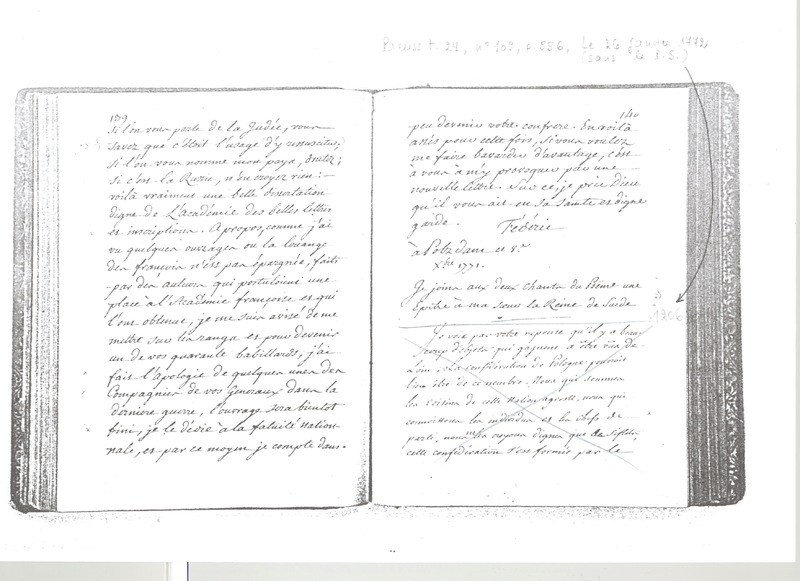 Preuss t. 24, n° 109, p. 556, Le 26 janvier 1772
(sans le P.S.)
139
si l'on vous parle de la Judée, vous
savez que c'était l'usage d'y ressuscites;
si l'on vous nomme mon pays,
si c'est la Russie, n'en croyez rien:
voilà vraiment une belle dissertation
digne de L'académie des belles lettres
et inscriptions. Apropos, comme j'ai
vu quelques ouvrages ou la louange
des françois n'est pas épargnée, faits
par des auteurs qui postuloient une
place à l'Académie françoise et qui
l'ont obtenue, je me suis avisé de me
mettre sur les rangs et pour devenir
un de vos quarante babillards, j'ai
fait l'apologie de quelques unes des
Compagnies de vos Generaux dans la
derniere guerre, l'ouvrage sera bientot
fini, je le dédie à la fatuité natio-
nale, et par ce moyen je compte dans
140
peu dermier votre confrere. En voilà
assés pour cette fois, si vous voulez
me faire bavarder d'avantage, c'est
à vous à m'y provoquer par une
nouvelle lettre. Sur ce, je prie Dieu
qu'il vous ait en sa sainte et digne
garde.
Féderic
à Potzdam ce 8.e
Xbre 1771.
Je joins aux deux chants du Poeme une
Epitre à ma soeur la Reine de Suede
1206
Je vois par votre réponse qu'il y a beau
coup d'objets qui gagnent à être vûs de
loin; la confédération de Pologne pouvoit
bien être de ce nombre. Nous qui sommes
les voisins de cette nation agreste, nous qui
connoissons les individus et les chefs de
parti, nous ne les croyons dignes que de sifflets,
cette confédération s'est formée par le